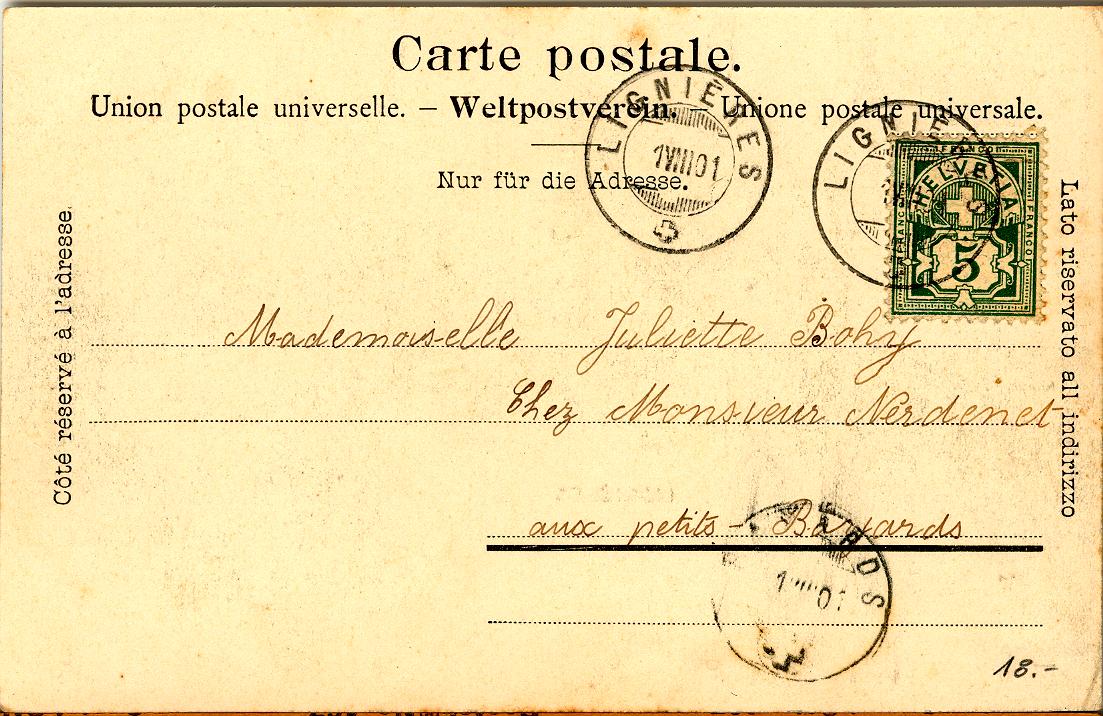 Carte postale.
Union postale universelle. – Weltpostverein. – Unione postale universale.
Nur für die Adresse.
Côté réservé à l'adresse.
Lato riservato all indirizzo
LIGNIÈRES
1 VIII 01
LIGNIÈRES
FRANCO
FRANCO
FRANCO
HELVETIA
5
Mademoiselle Juliette Bohy
Chez Monsieur Nerdenet
aux petits-Bayards
ARDS
01
18.-